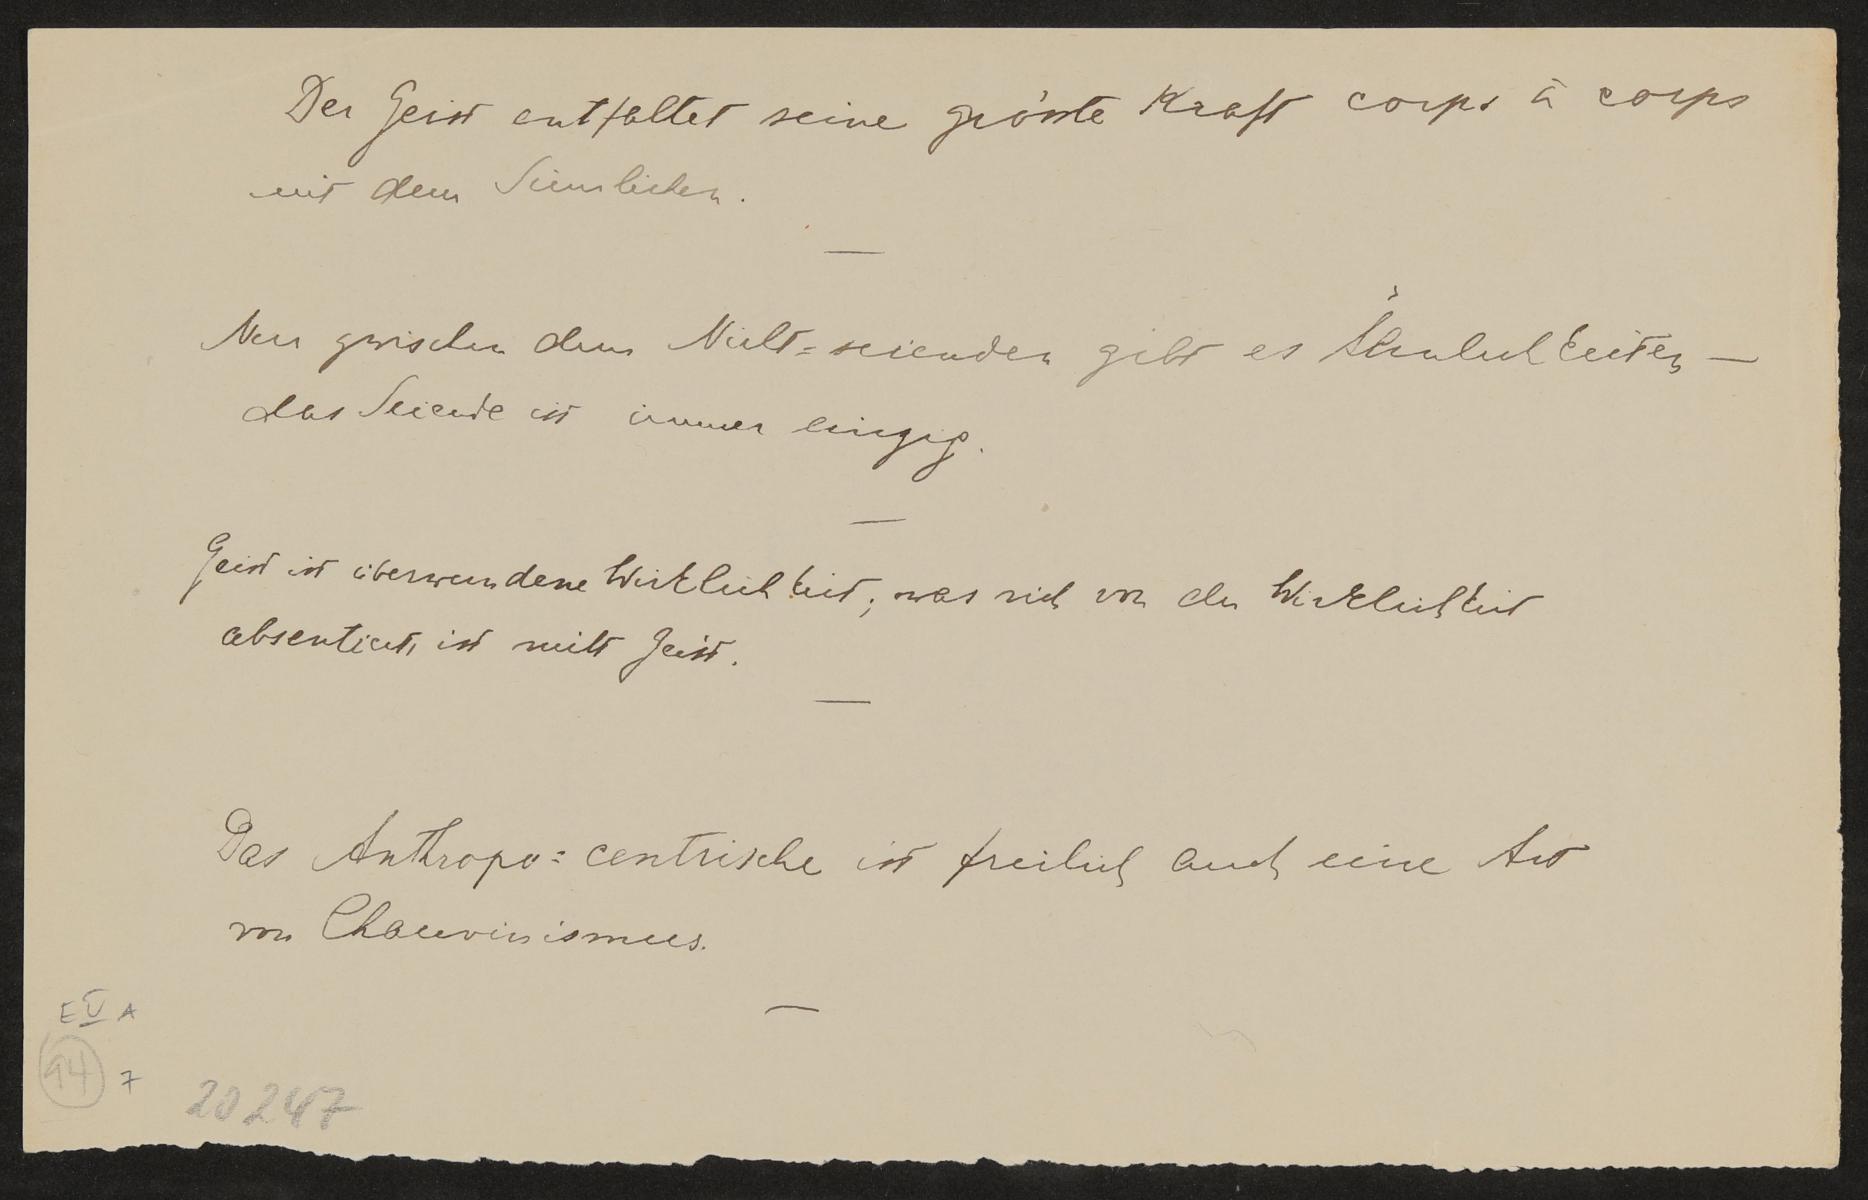 Der Geist entfaltet seine grösste Kraft corps à corps
mit dem Sinnlichen.
—
Nur zwischen dem Nicht=seienden gibt es Ähnlichkeiten —
das Seiende ist immer einzig.
—
Geist ist überwundene Wirklichkeit; was sich von der Wirklichkeit
absentiert, ist nicht Geist.
—
Das Anthropo=centrische ist freilich auch eine Art
von Chauvinismus.
—
E V A
94 7
20247